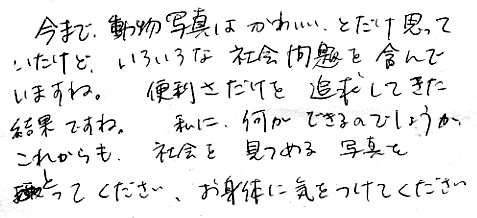 今まで、動物写真はかわいい、とだけ思って
いたけど、いろいろな社会問題を含んで
いますね。 便利さだけを追求してきた
結果ですね。 私に、何ができるのでしょうか、
これからも、社会を見つめる写真を
とってください、お身体に気をつけてください